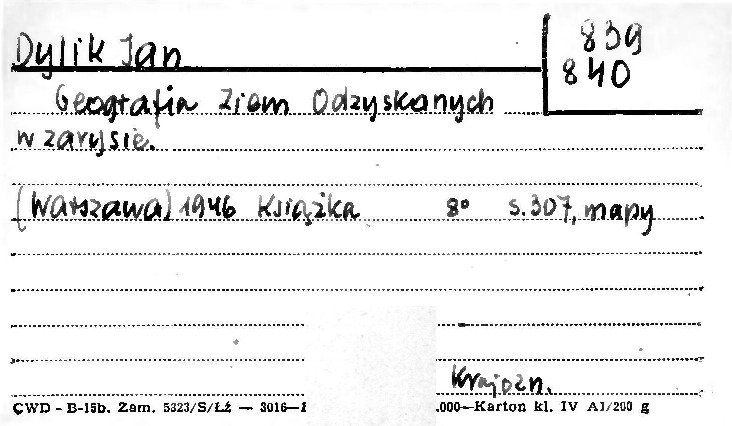 Dylik Jan
839
840
Geografia Ziem Odzyskanych
w zarysie.
(Warszawa) 1946 Książka 8° s. 307, mapy
Krajozn.
CWD - B-15b. Zam. 5323/S/Łź — 3016— .000—Karton kl. IV A1/200 g